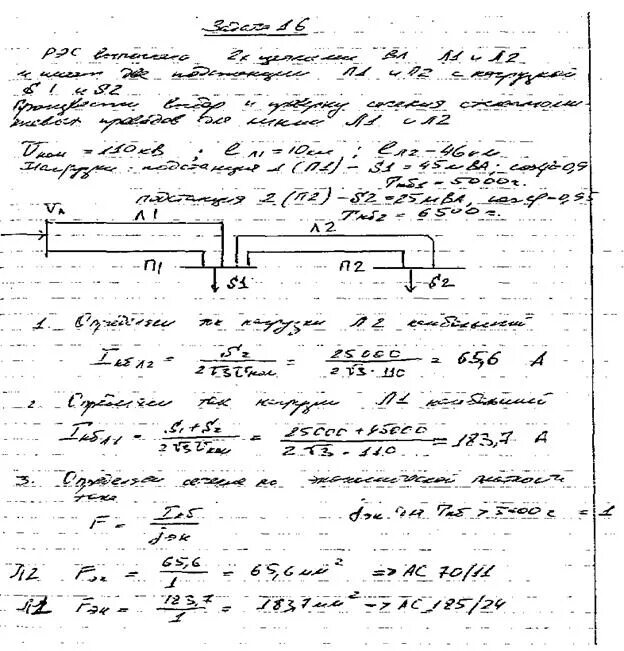 Задача 16
РЭС выполнена 2х цепными ВЛ Л1 и Л2
и имеет две подстанции П1 и П2 с нагрузкой
S1 и S2
Произвести выбор и проверку сечения сталеалюми-
ниевых проводов для линий Л1 и Л2
Uном = 110 кВ ; ℓл1 = 10 км ; ℓл2 - 46 км.
Нагрузки: подстанция 1 (П1) - S1 = 45 мВА, cosφ=0,9
Тнб1 = 5000 г.
подстанция 2 (П2) - S2 = 25 мВА, cosφ=0,95
Тнб2 = 6500 г.
Л1
Л2
П1
S1
П2
S2
1. Определяем ток нагрузки Л2 наибольший
Iнб Л2 = S2 / 2√3 Uном = 25000 / 2√3 · 110 = 65,6 А
2. Определяем ток нагрузки Л1 наибольший
Iнб Л1 = S1 + S2 / 2√3 Uном = 25000 + 45000 / 2√3 · 110 = 183,7 А
3. Определяем сечение по экономической плотности
тока
F = Iнб / jэк
jэк при Тнб > 5000 г = 1
Л2 Fэк = 65,6 / 1 = 65,6 мм² => АС 70/11
Л1 Fэк = 183,7 / 1 = 183,7 мм² => АС 185/24